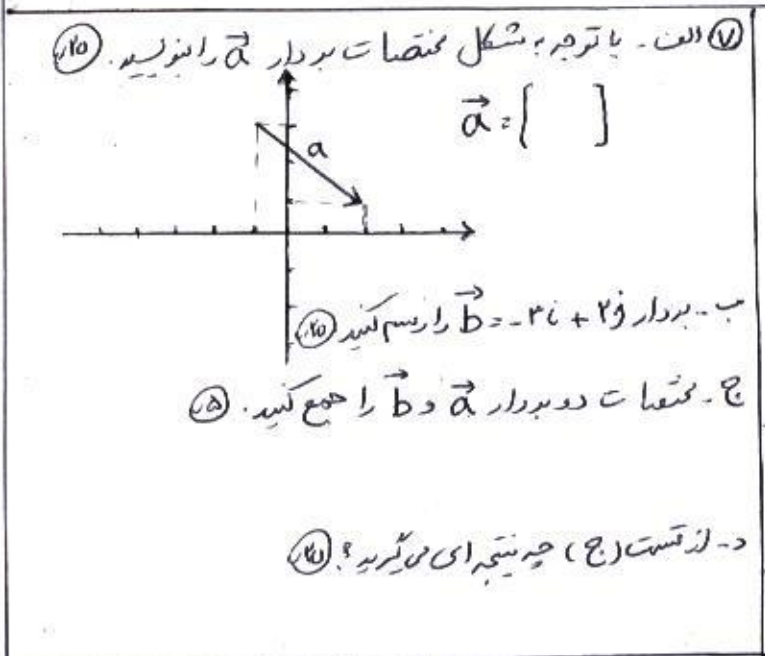 ۷ الف - با توجه به شکل مختصات بردار a⃗ را بنویسید. ۰/۲۵
a⃗ = [ ]
a
ب - بردار b⃗ = -۳i + ۲j را رسم کنید ۰/۲۵
ج - مختصات دو بردار a⃗ و b⃗ را جمع کنید. ۰/۵
د - از قسمت (ج) چه نتیجه ای می گیرید؟ ۰/۲۵